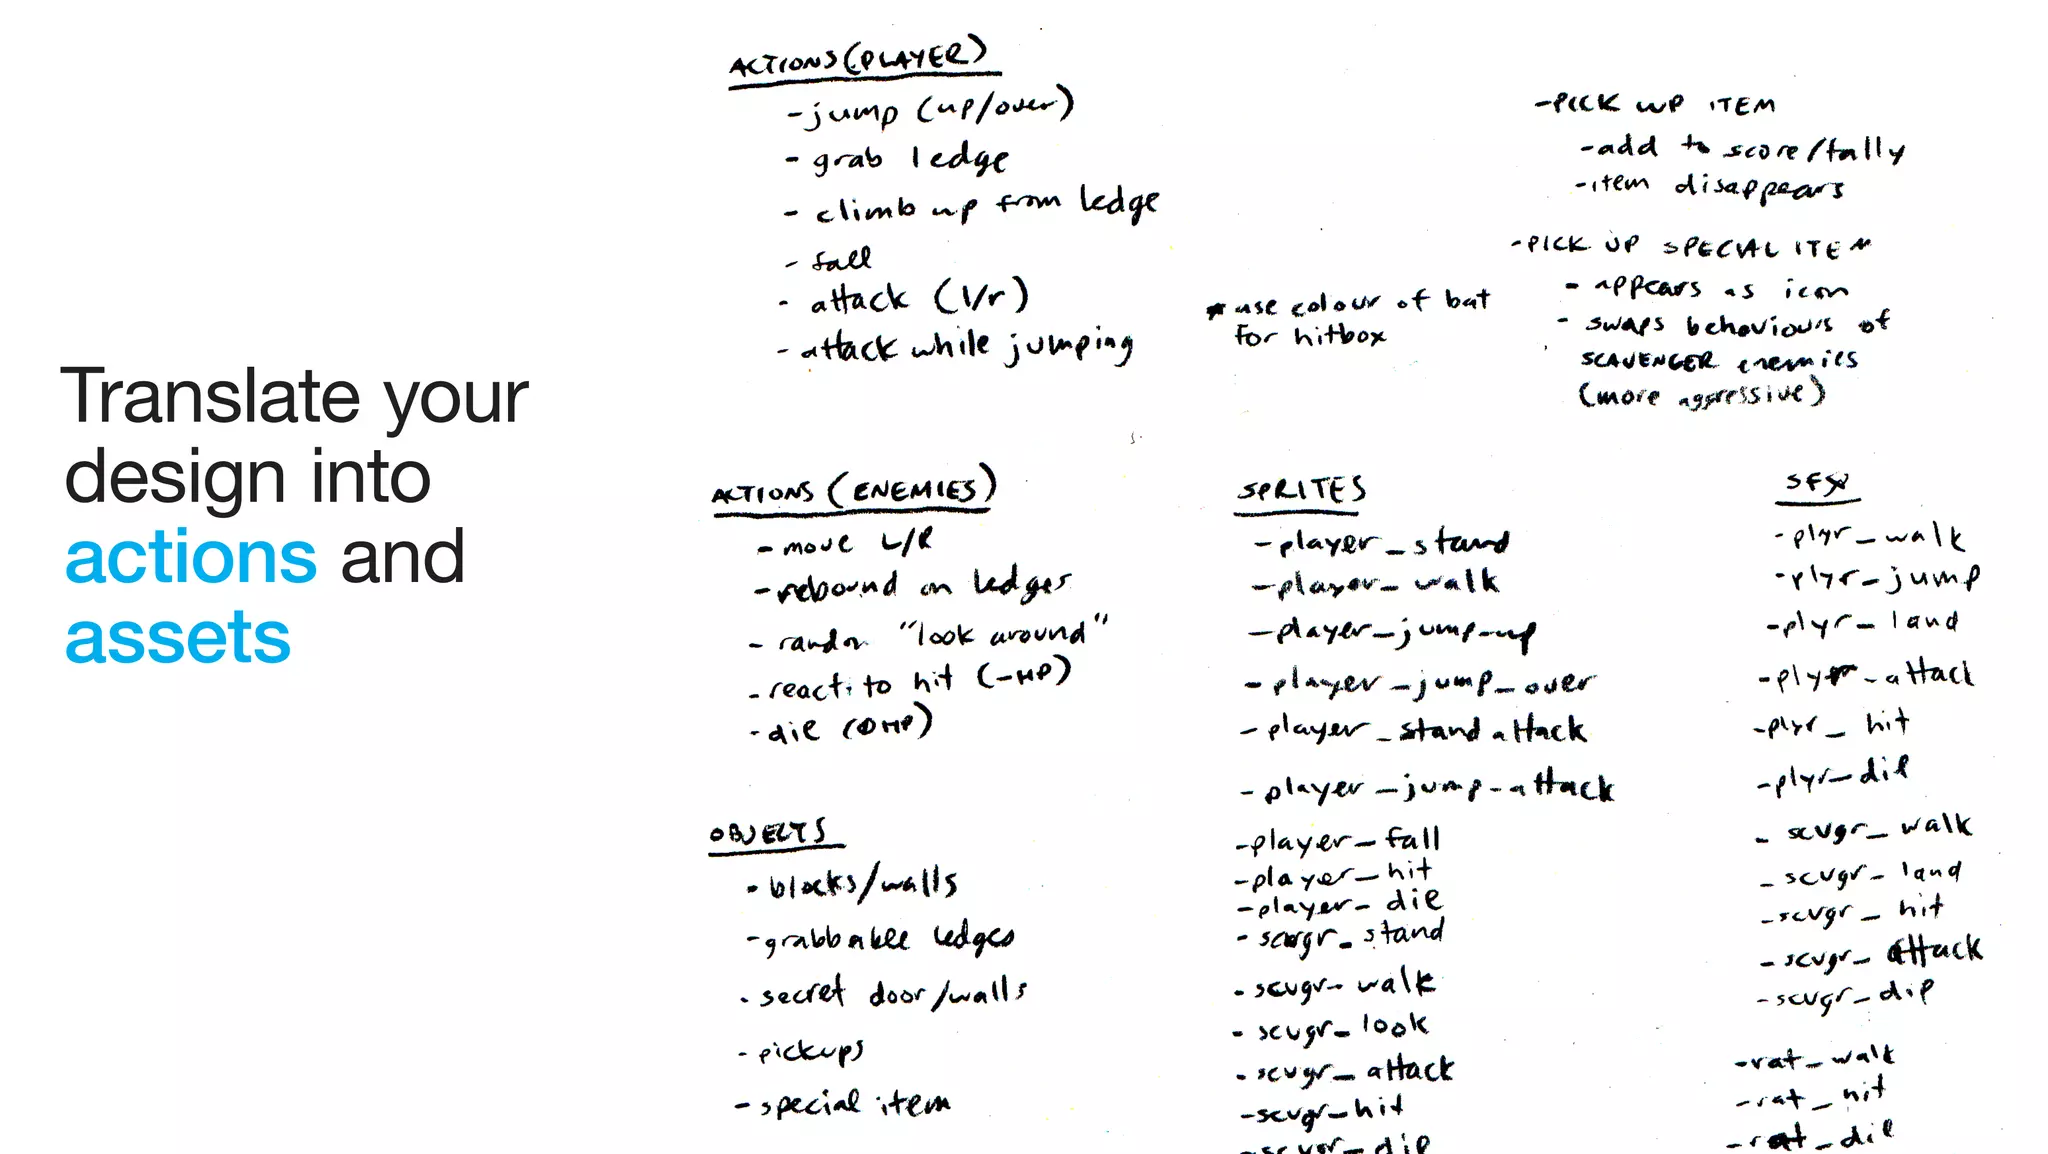 Translate your
design into
actions and
assets
ACTIONS (PLAYER)
- jump (up/over)
- grab ledge
- climb up from ledge
- fall
- attack (l/r)
- attack while jumping
* use colour of bat
for hitbox
- PICK UP ITEM
- add to score/tally
- item disappears
- PICK UP SPECIAL ITEM
- appears as icon
- swaps behaviours of
SCAVENGER enemies
(more aggressive)
ACTIONS (ENEMIES)
- move L/R
- rebound on ledges
- random "look around"
- react to hit (-HP)
- die (0HP)
OBJECTS
- blocks/walls
- grabbable ledges
- secret door/walls
- pickups
- special item
SPRITES
- player_stand
- player_walk
- player_jump_up
- player_jump_over
- player_stand attack
- player_jump_attack
- player_fall
- player_hit
- player_die
- scvgr_stand
- scvgr_walk
- scvgr_look
- scvgr_attack
- scvgr_hit
- scvgr_die
SFX
- plyr_walk
- plyr_jump
- plyr_land
- plyr_attack
- plyr_hit
- plyr_die
- scvgr_walk
- scvgr_land
- scvgr_hit
- scvgr_attack
- scvgr_die
- rat_walk
- rat_hit
- rat_die